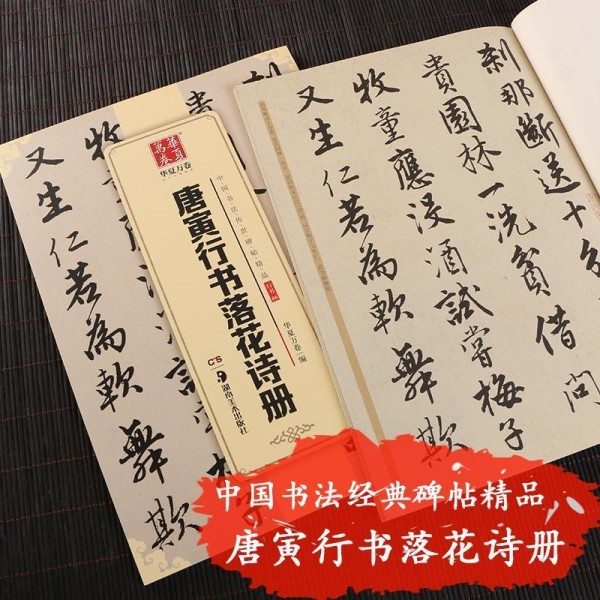 華夏萬卷
华夏万卷
中国书法传世碑帖精品
行书
唐寅行书落花诗册
华夏万卷 编
湖南美术出版社
牧童
又生仁若為軟舞欺
刹那斷送十
貴園林一洗貧借問
牧童應沒酒試嘗梅子
又生仁若為軟舞欺
中国书法经典碑帖精品
唐寅行书落花诗册